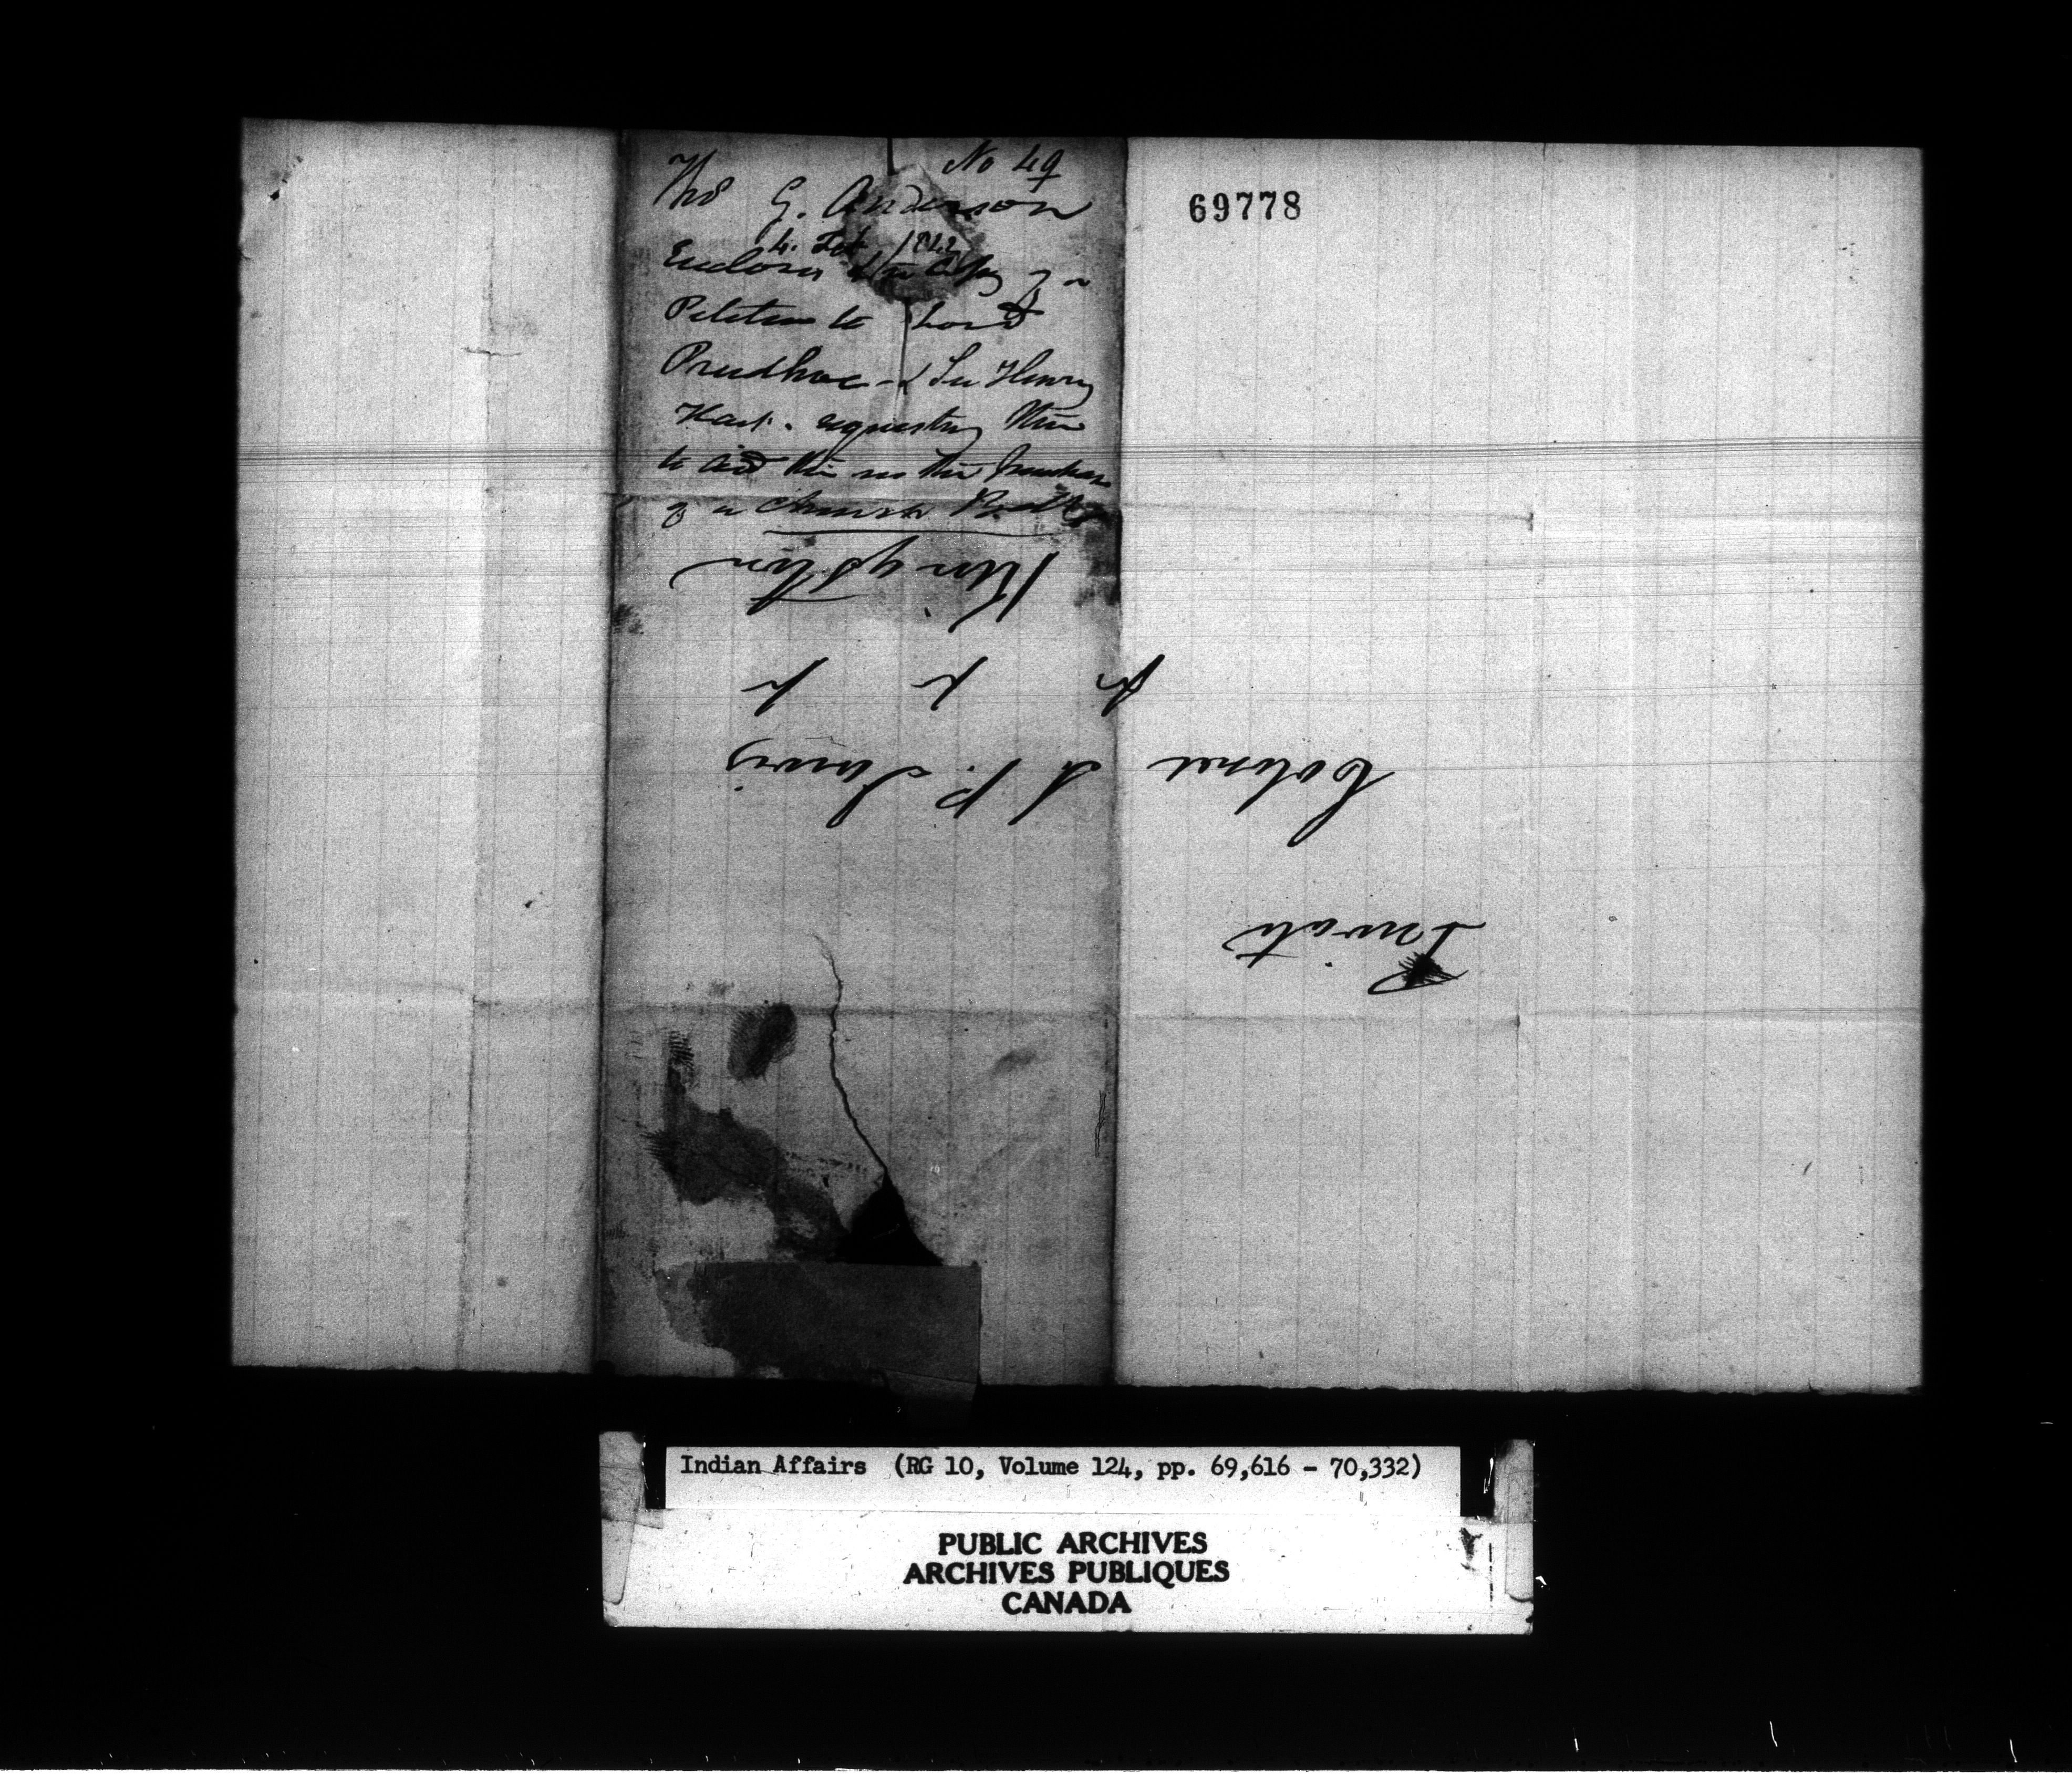 No 49
Thos G. Anderson
4. Feb 1842
Encloses a Copy of a
Petition to Lord
Prudhoe & Sir Henry
Hart. requesting them
to aid them in the purchase
of a Church Bell
69778
Kingston
Colonel S P. Jarvis
Private
Indian Affairs (RG 10, Volume 124, pp. 69,616 - 70,332)
PUBLIC ARCHIVES
ARCHIVES PUBLIQUES
CANADA